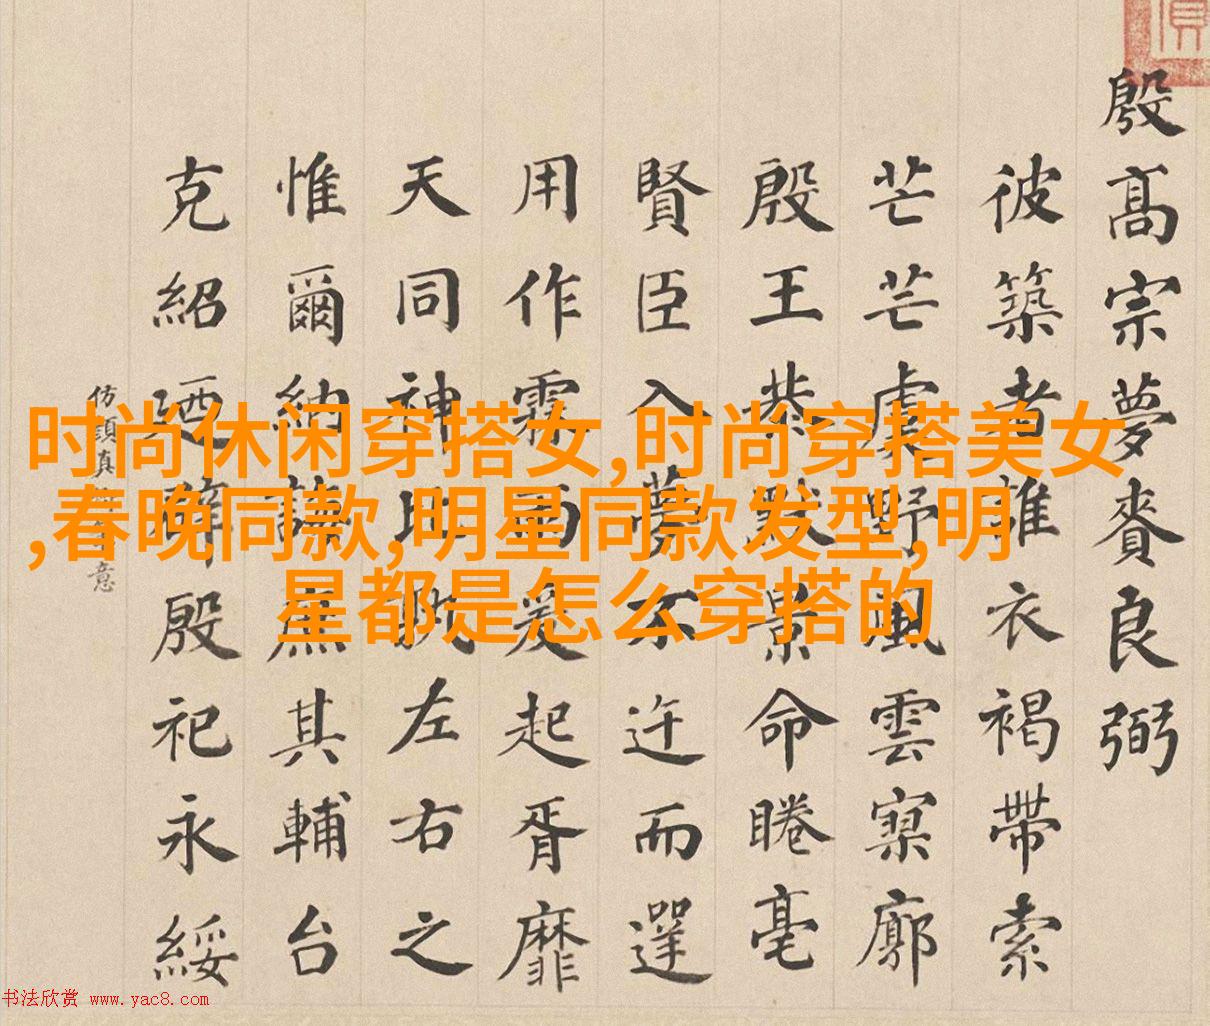 殷髙宗夢賚良弼
彼築者誰衣褐帶索
芒芒虞野風雲寥廓
殷王恭默景命睠亳
賢臣入夢不迕而遻
用作霖雨爰起胥靡
天同神比左右之
惟爾納其輔台
克紹廼辟殷祀永綏
仿真意
时尚休闲穿搭女,时尚穿搭美女
,春晚同款,明星同款发型,明
星都是怎么穿搭的
书法欣赏 www.yac8.com